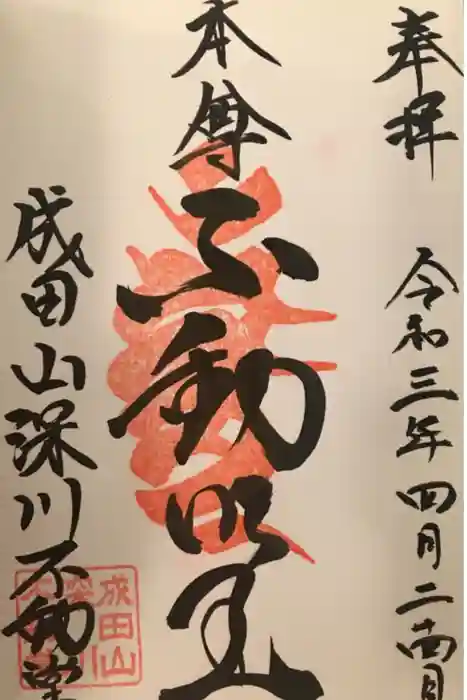 奉拝
令和三年四月二十四日
本尊
不動明王
成田山深川不動堂
成田山